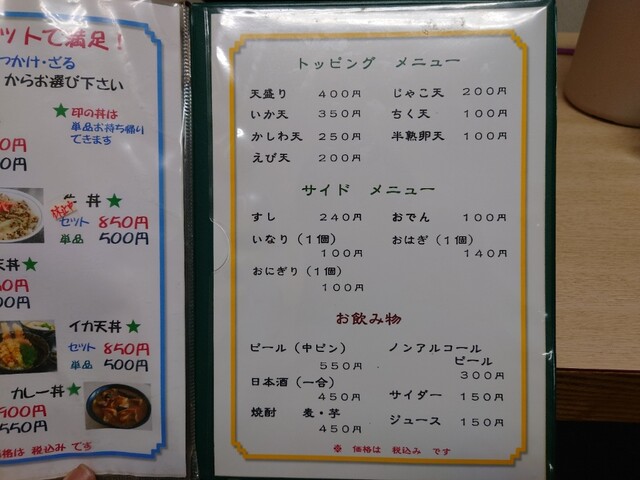 ットで満足！
つかけ・ざる
からお選び下さい
★印の丼は
単品お持ち帰り
できます
0円
0円
牛丼★
セット 850円
単品 500円
天丼★
0円
00円
イカ天丼★
セット 850円
単品 500円
カレー丼★
900円
550円
価格は 税込み です
トッピング メニュー
天盛り 400円 じゃこ天 200円
いか天 350円 ちく天 100円
かしわ天 250円 半熟卵天 100円
えび天 200円
サイド メニュー
すし 240円 おでん 100円
いなり（1個） おはぎ（1個）
100円 140円
おにぎり（1個）
100円
お飲み物
ビール（中ビン） ノンアルコール
ビール
550円 300円
日本酒（一合）
450円 サイダー 150円
焼酎 麦・芋
450円 ジュース 150円
※ 価格は 税込み です